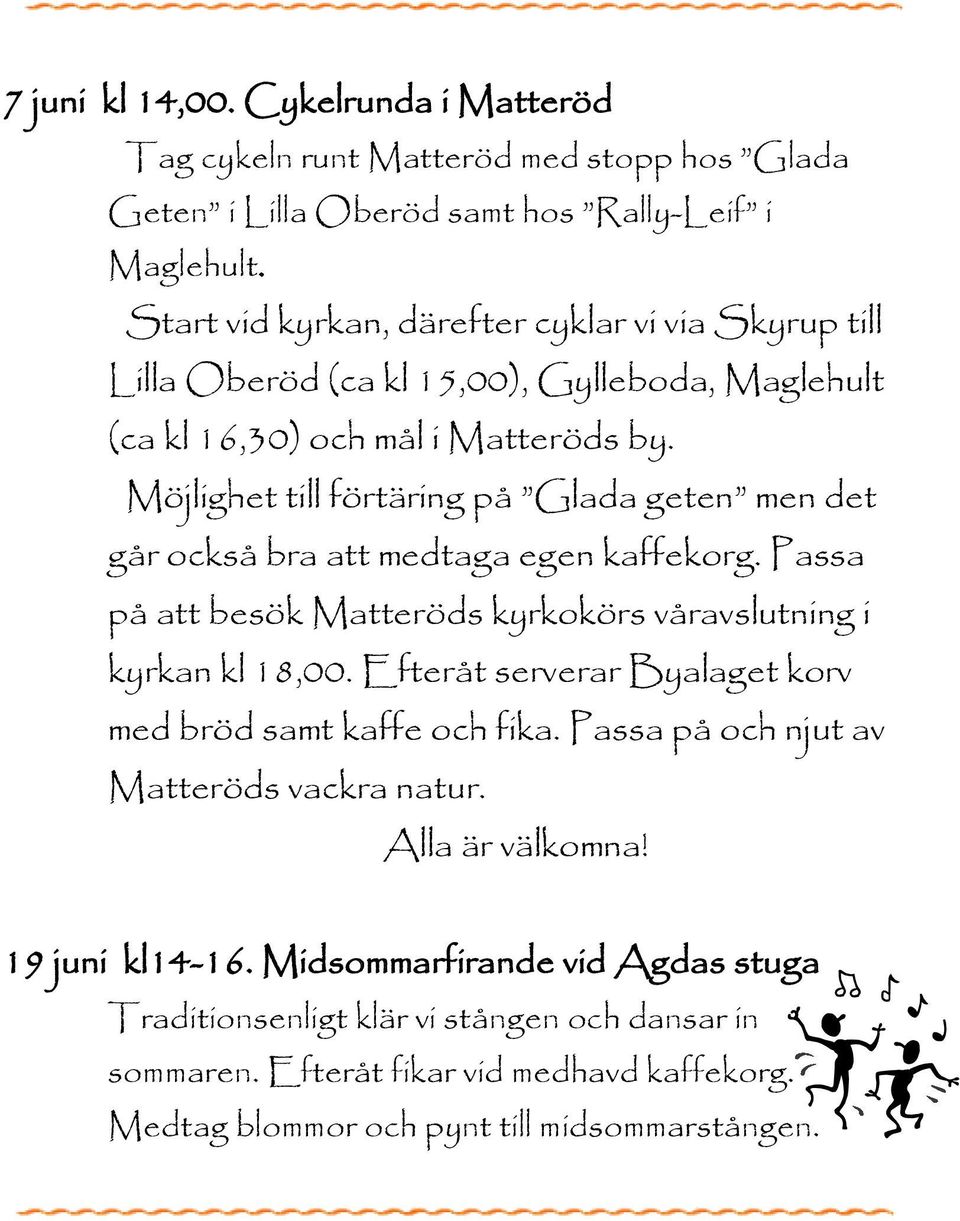 7 juni kl 14,00. Cykelrunda i Matteröd
Tag cykeln runt Matteröd med stopp hos ”Glada
Geten” i Lilla Oberöd samt hos ”Rally-Leif” i
Maglehult.
Start vid kyrkan, därefter cyklar vi via Skyrup till
Lilla Oberöd (ca kl 15,00), Gylleboda, Maglehult
(ca kl 16,30) och mål i Matteröds by.
Möjlighet till förtäring på ”Glada geten” men det
går också bra att medtaga egen kaffekorg. Passa
på att besök Matteröds kyrkokörs våravslutning i
kyrkan kl 18,00. Efteråt serverar Byalaget korv
med bröd samt kaffe och fika. Passa på och njut av
Matteröds vackra natur.
Alla är välkomna!
19 juni kl14-16. Midsommarfirande vid Agdas stuga
Traditionsenligt klär vi stången och dansar in
sommaren. Efteråt fikar vid medhavd kaffekorg.
Medtag blommor och pynt till midsommarstången.